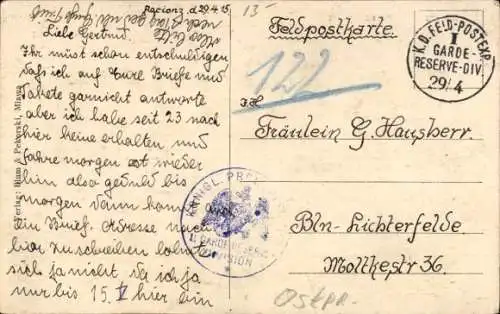 Racionz, d 29.4.15.
Liebe Gertrud.
Ihr müst schon entschuldigen
daß ich auf Eure Briefe und
Pakete garnicht antworte
aber ich habe seit 23 nach
hier keine erhalten und
fahre morgen erst wieder
hin also geduld bis
morgen dann kommt
ein Brief. Adresse nach
hier zu schreiben lohnt
sich ja nicht da ich ja
nur bis 15. V hier bin
Verlag: Blum & Pekorski, Mlawa
13-
Feldpostkarte.
K.D. FELD-POSTEXP.
I
GARDE-
RESERVE-DIV
29/4
122
Fräulein G. Hausherr.
Bln-Lichterfelde
Moltkestr 36.
KÖNIGL. PR
GARDE RESERVE
DIVISION
Ostpr.